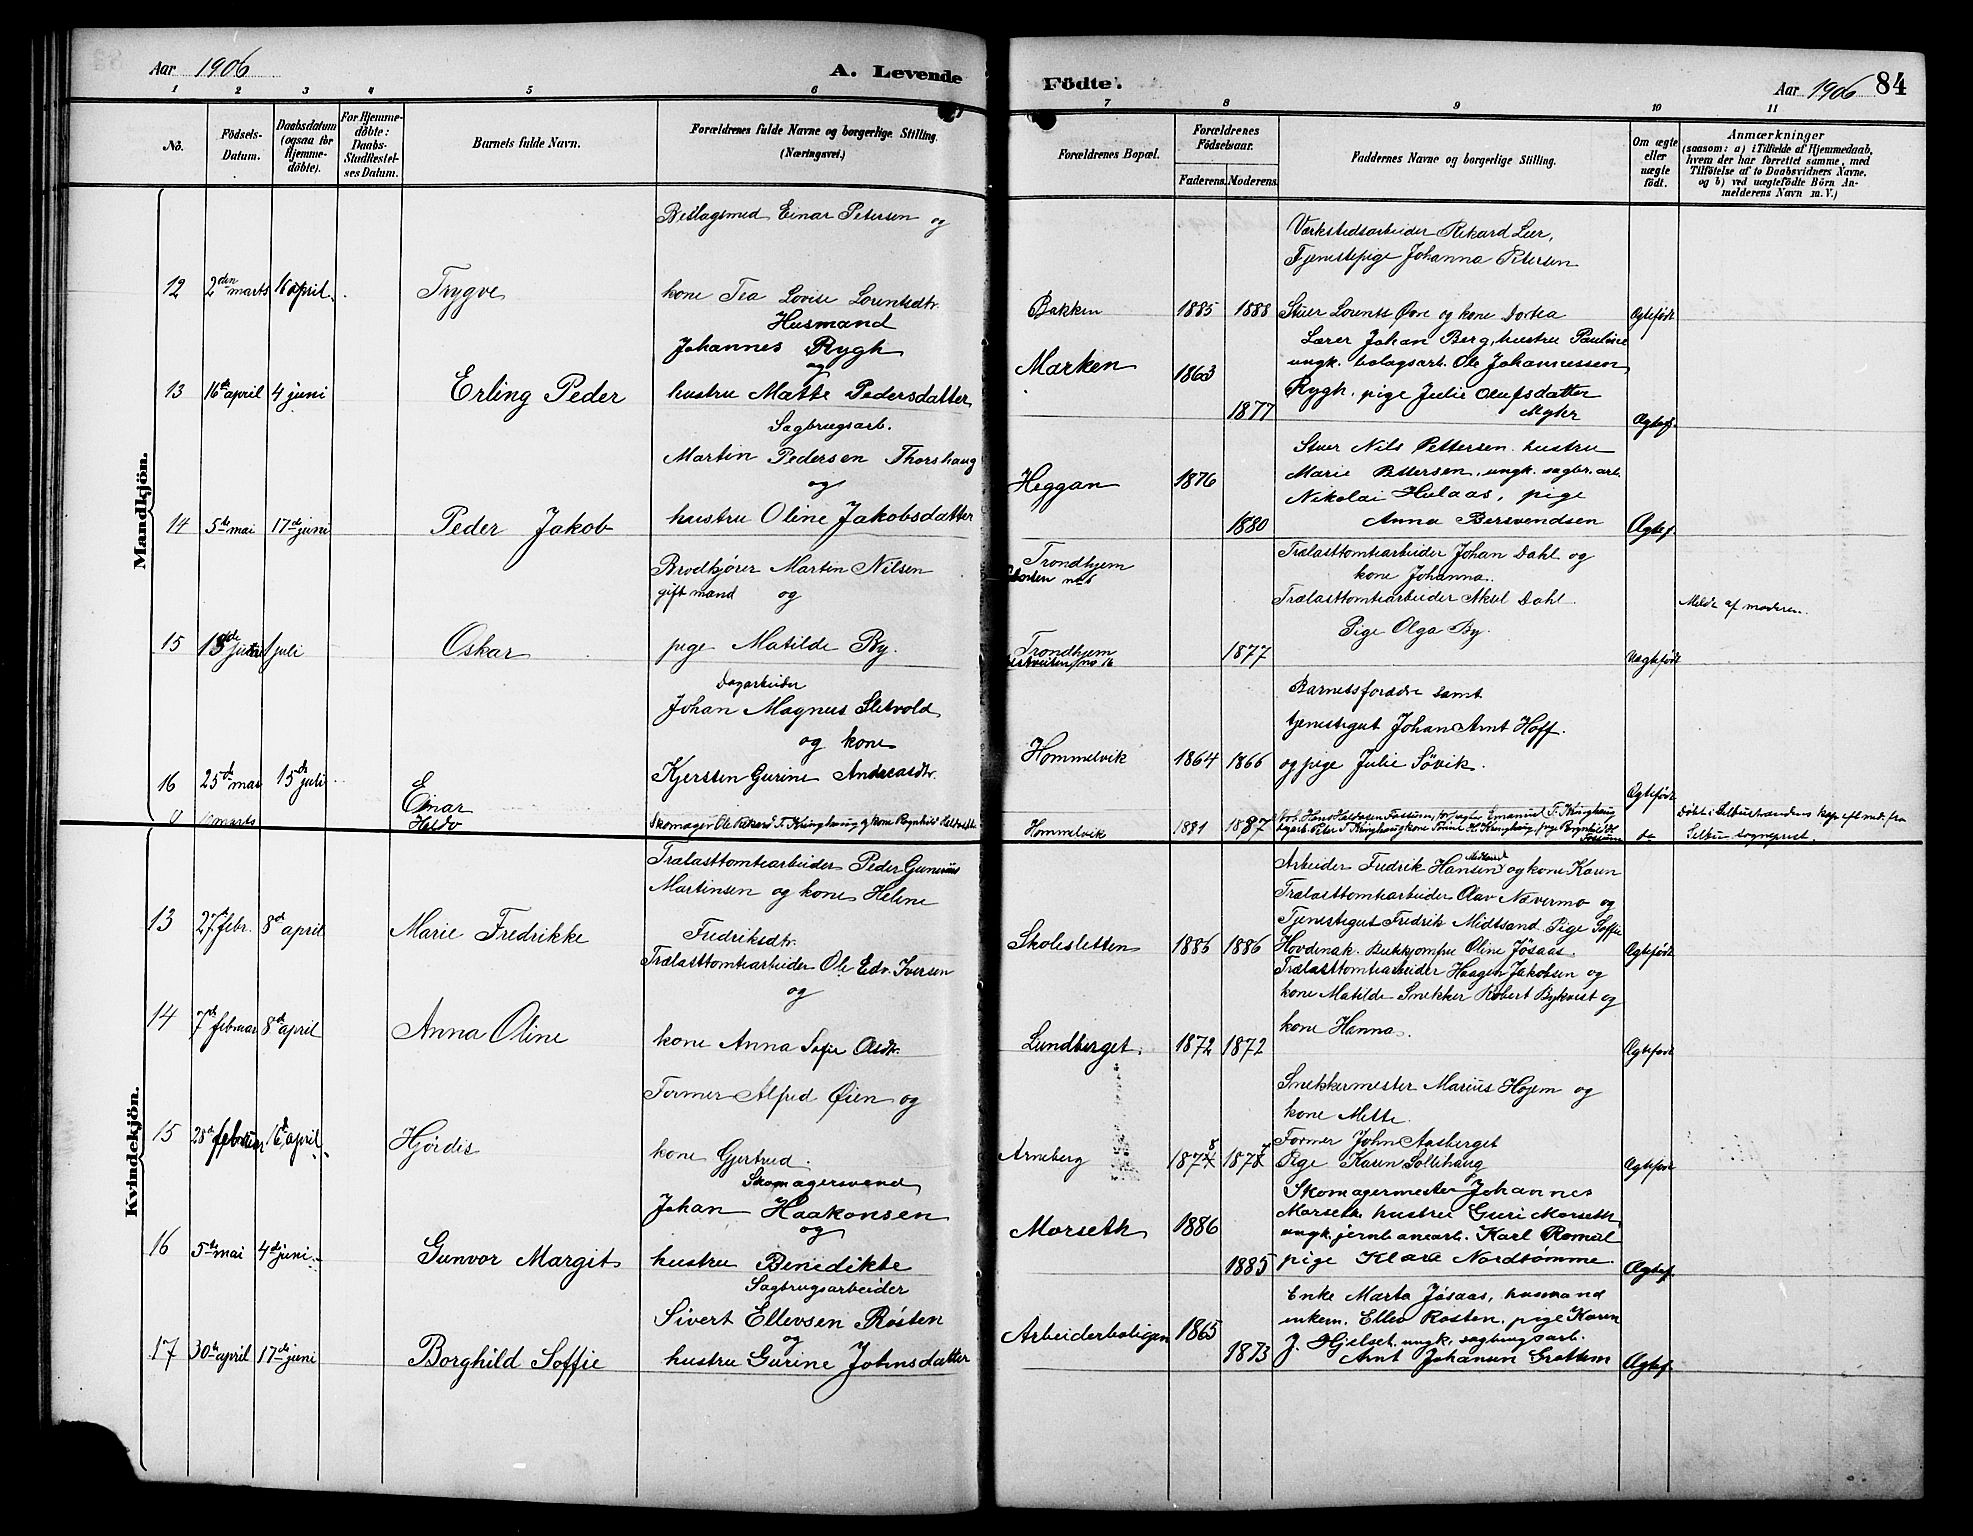 Aar 1906
A. Levende
Födte.
Aar 1906 84
1 2 3 4 5 6 7 8 9 10 11
No.
Födsels-Datum.
Daabsdatum (ogsaa for Hjemme-döbte).
For Hjemme-döbte: Daabs-Stadfæstel-ses Datum.
Barnets fulde Navn.
Forældrenes fulde Navne og borgerlige Stilling. (Næringsvei.)
Forældrenes Bopæl.
Forældrenes Födselsaar.
Faderens. Moderens.
Faddernes Navne og borgerlige Stilling.
Om ægte eller uægte födt.
Anmærkninger
(saasom: a) i Tilfælde af Hjemmedaab,
hvem der har forrettet samme, med
Tilföielse af to Daabsvidners Navne,
og b) ved uægtefödte Börn An-
melderens Navn m. V.)
Mandkjön.
Beslagsmed Einar Petersen og
Værkstedsarbeider Rikard Lier,
Tjenestepige Johanna Petersen
12 2den marts 16 april. Trygve kone Tea Lovise Lorentsdtr. Bakken 1885 1888 Stuer Lorents Øvre og kone Dortea Ægtefødt
Husmand
Johannes Rygh
og
Lærer Johan Berg, hustru Pauline
Marken 1863 ungk. bolagsarb. Ole Johannessen
13 16de april 4 juni Erling Peder hustru Mætte Pedersdatter 1877 Rygh, pige Julie Olufsdatter
Myhr Ægtef.
Sagbrugsarb.
Martin Pedersen Thorshaug
og
Stuer Nils Pettersen, hustru
Heggan 1876 Marie Pettersen, ungk. sagbr. arb.
Nikolai Hulaas, pige
14 5te mai 17de juni Peder Jakob hustru Oline Jakobsdatter 1880 Anna Bersvendsen Ægtef.
Brødkjører Martin Nilsen
gift mand og
Trondhjem
Trælasttomtearbeider Johan Dahl og
kone Johanna.
Trælasttomtearbeider Aksel Dahl
Melde af moderen.
15 juli Oskar pige Matilde By. Trondhjem 1877 Pige Olga By. Uægtefødt
no 16
Dagarbeider
Johan Magnus Sletvold
og kone
Barnets forældre samt
tjenestegut Johan Arnt Hoff.
16 25de mai 15de juli Einar Kjersten Gurine Andreasdtr. Hommelvik 1864 1866 og pige Julie Søvik. Ægtefødt
0 10 marts Haldo Skomager Ole Rikard T. Kringhaug og kone Ragnhild Haldosdtr Hommelvik 1881 1887 Hans Haldosen Fossum, Emanuel T. Kringhaug do
Peter T. Kringhaug kone Trine Kringhaug, pige Ragnhild Fossum
Døbt i Selbustrandens kap. efl. md. fra
Selbu sogneprest.
Kvindekjön.
Trælasttomtearbeider Peder Gunerius
Martinsen og kone Helene
Arbeider Fredrik Hansen Midtsand og kone Karen
Trælasttomtearbeider Olav Nævermo og
Tjenestegut Fredrik Midtsand. Pige Soffie
13 27de febr. 8de april Marie Fredrikke Fredriksdtr. Skolesletten 1885 1886 Hovdenak. Butikjomfru Oline Jøsaas. Ægtefødt
Trælasttomtearbeider Ole Edv. Iversen
og
Trælasttomtearbeider Haagen Jakobsen og
kone Matilde Snekker Robert Bykvist og
14 7de februar 8de april Anna Oline kone Anna Sofie Olsdtr. Lundberget. 1872 1872 kone Hanna. Ægtefødt
Former Alfred Øien og
Snekkermester Marius Hojem og
kone Mette.
15 28de februar 16de april. Hjørdis kone Gjertrud. Arneberg 1878 Former John Aasberget
Pige Karen Sollihaug Ægtefødt
Skomagersvend
Johan Haakonsen
og
Skomagermester Johannes
Morseth 1886 Morseth, hustru Guri Morseth,
ungk. jernbanearb. Karl Romul
16 5te mai 4de juni. Gunvor Margit hustru Benedikte 1885 pige Klara Nordtømme Ægtef.
Sagbrugsarbeider
Sivert Ellevsen Røsten
og
Enke Marta Jøsaas, husmand
enkem. Ellev Røsten, pige Karen
Arbeiderboligen 1865 J. Hjelset, ungk. sagbrugsarb.
17 30te april 17de juni Borghild Soffie hustru Gurine Johnsdatter 1873 Arnt Johansen Grøttem Ægtef.